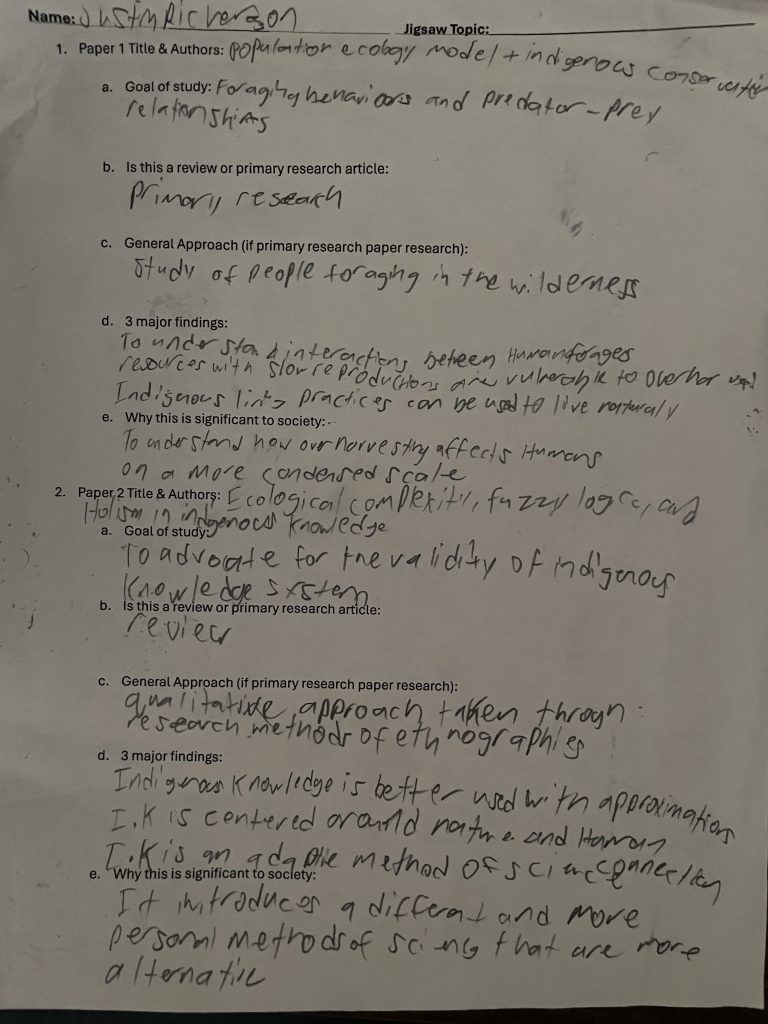 Name: Justin Dickerson
Jigsaw Topic:
1. Paper 1 Title & Authors: Population ecology model + indigenous conservation
a. Goal of study: Foraging behaviors and predator-prey
relationships
b. Is this a review or primary research article:
Primary research
c. General Approach (if primary research paper research):
Study of people foraging in the wilderness
d. 3 major findings:
To understand interactions between Human forages
resources with slow reproductions are vulnerable to
Indigenous practices can be used to live naturaly
e. Why this is significant to society:
To understand how overharvesting affects Humans
on a more condensed scale
2. Paper 2 Title & Authors: Ecological complexity, fuzzy logic, and
Holism in indgenous knowledge
a. Goal of study:
To advocate for the validity of indigenous
Knowledge system
b. Is this a review or primary research article:
review
c. General Approach (if primary research paper research):
qualitative approach taken through:
research methods of ethnographies
d. 3 major findings:
Indigenous Knowledge is better used with approximations
I.K is centered around nature and Human
I.K is an method of science connection
e. Why this is significant to society:
It introduces a different and more
personal methods of science that are more
alternative